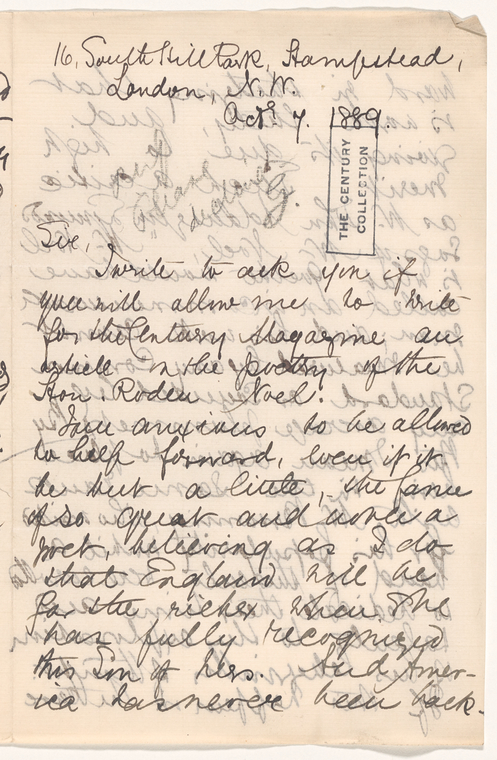 16, South Hill Park, Hampstead,
London, N.W.
Octr. 7. 1889.
THE CENTURY
COLLECTION
Sir,
I write to ask you if
you will allow me to write
for the Century Magazine an
article on the poetry of the
Hon. Roden Noel.
I am anxious to be allowed
to help forward, even if it
be but a little, the fame
of so great and noble a
poet, believing as I do
that England will be
far the richer when she
has fully recognized
this Son of hers. And Amer-
ica has never been back-